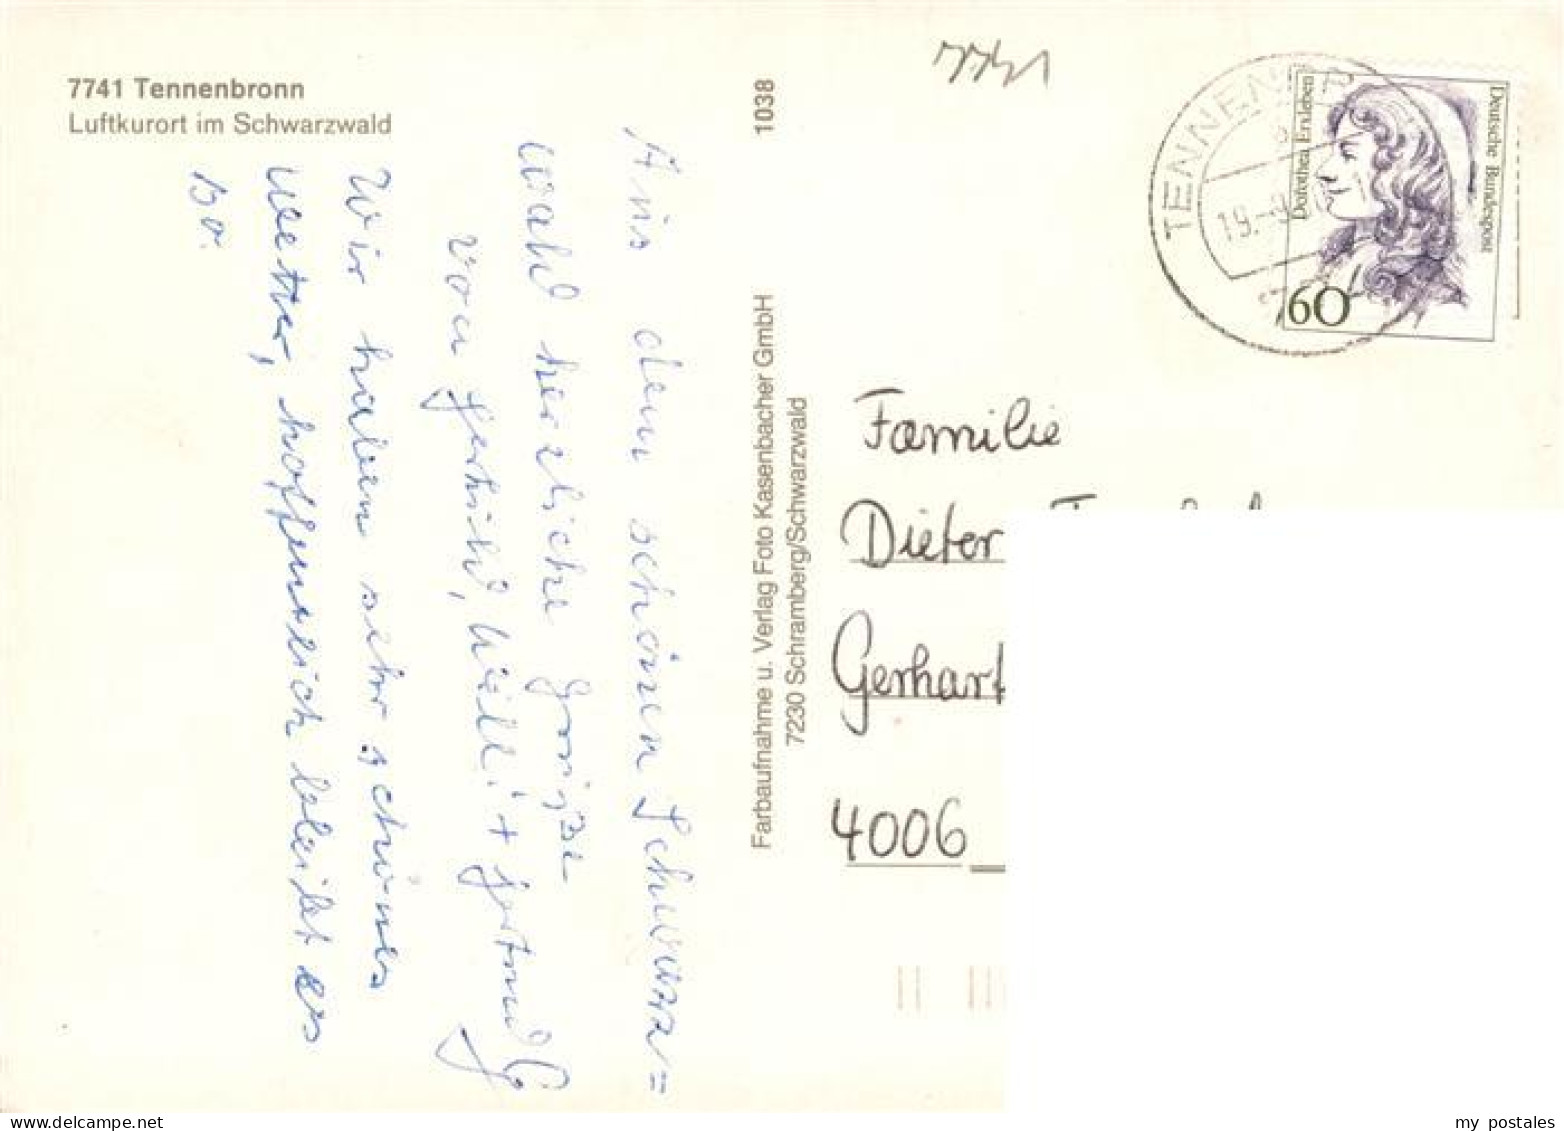 7741 Tennenbronn
Luftkurort im Schwarzwald
7741
TENNENBR
19.-9
Deutsche Bundespost
Dorothea Erxleben
60
Aus dem schönen Schwarz=
wald herzliche Grüße
von Gerhild, Willi + Gertrud G
Wir haben sehr schönes
Wetter, hoffentlich bleibt es
so.
1038
Farbaufnahme u. Verlag Foto Kasenbacher GmbH
7230 Schramberg/Schwarzwald
Familie
Dieter
Gerhart
4006
my postales